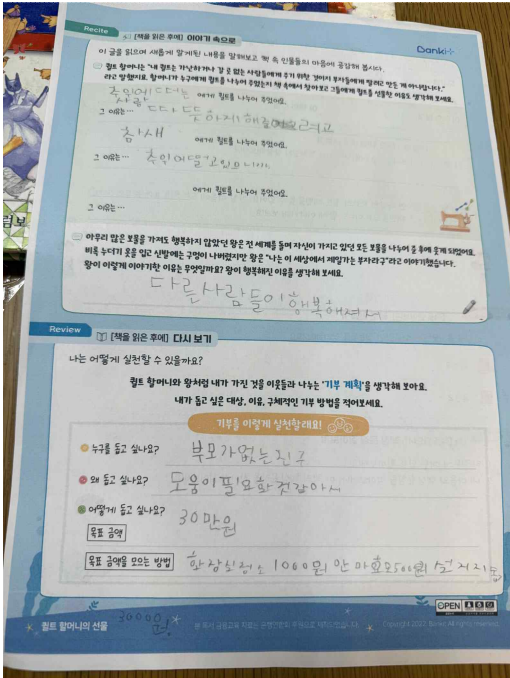 Recite
[책을 읽은 후에] 이야기 속으로
Banki+
이 글을 읽으며 새롭게 알게된 내용을 말해보고 책 속 인물들의 마음에 공감해 봅시다.
퀼트 할머니는 "내 퀼트는 가난하거나 갈 곳 없는 사람들에게 주기 위한 것이지 부자들에게 팔려고 만든 게 아니랍니다."
라고 말했지요. 할머니가 누구에게 퀼트를 나누어 주었는지 책 속에서 찾아보고 그들에게 퀼트를 선물한 이유도 생각해 보세요.
추위에 떠는
사람 에게 퀼트를 나누어 주었어요.
그 이유는… 따뜻하게 해
참새 에게 퀼트를 나누어 주었어요.
그 이유는… 추위에 떨고있으니까
에게 퀼트를 나누어 주었어요.
그 이유는…
아무리 많은 보물을 가져도 행복하지 않았던 왕은 전 세계를 돌며 자신이 가지고 있던 모든 보물을 나누어 준 후에 웃게 되었어요.
비록 누더기 옷을 입고 신발에는 구멍이 나버렸지만 왕은 "나는 이 세상에서 제일가는 부자라구"라고 이야기했습니다.
왕이 이렇게 이야기한 이유는 무엇일까요? 왕이 행복해진 이유를 생각해 보세요.
다른 사람들이 행복해져서
Review
[책을 읽은 후에] 다시 보기
나는 어떻게 실천할 수 있을까요?
퀼트 할머니와 왕처럼 내가 가진 것을 이웃들과 나누는 '기부 계획'을 생각해 보아요.
내가 돕고 싶은 대상, 이유, 구체적인 기부 방법을 적어보세요.
기부를 이렇게 실천할래요!
누구를 돕고 싶나요? 부모가없는친구
왜 돕고 싶나요? 도움이필요할것같아서
어떻게 돕고 싶나요?
목표 금액 30만원
목표 금액을 모으는 방법 화장실청소 1000원 안마 500원 설거지
3000원
퀼트 할머니의 선물
OPEN